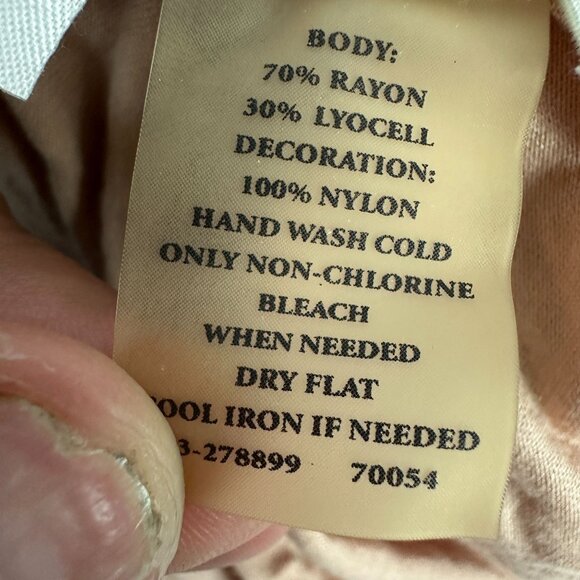 BODY:
70% RAYON
30% LYOCELL
DECORATION:
100% NYLON
HAND WASH COLD
ONLY NON-CHLORINE
BLEACH
WHEN NEEDED
DRY FLAT
OOL IRON IF NEEDED
3-278899 70054